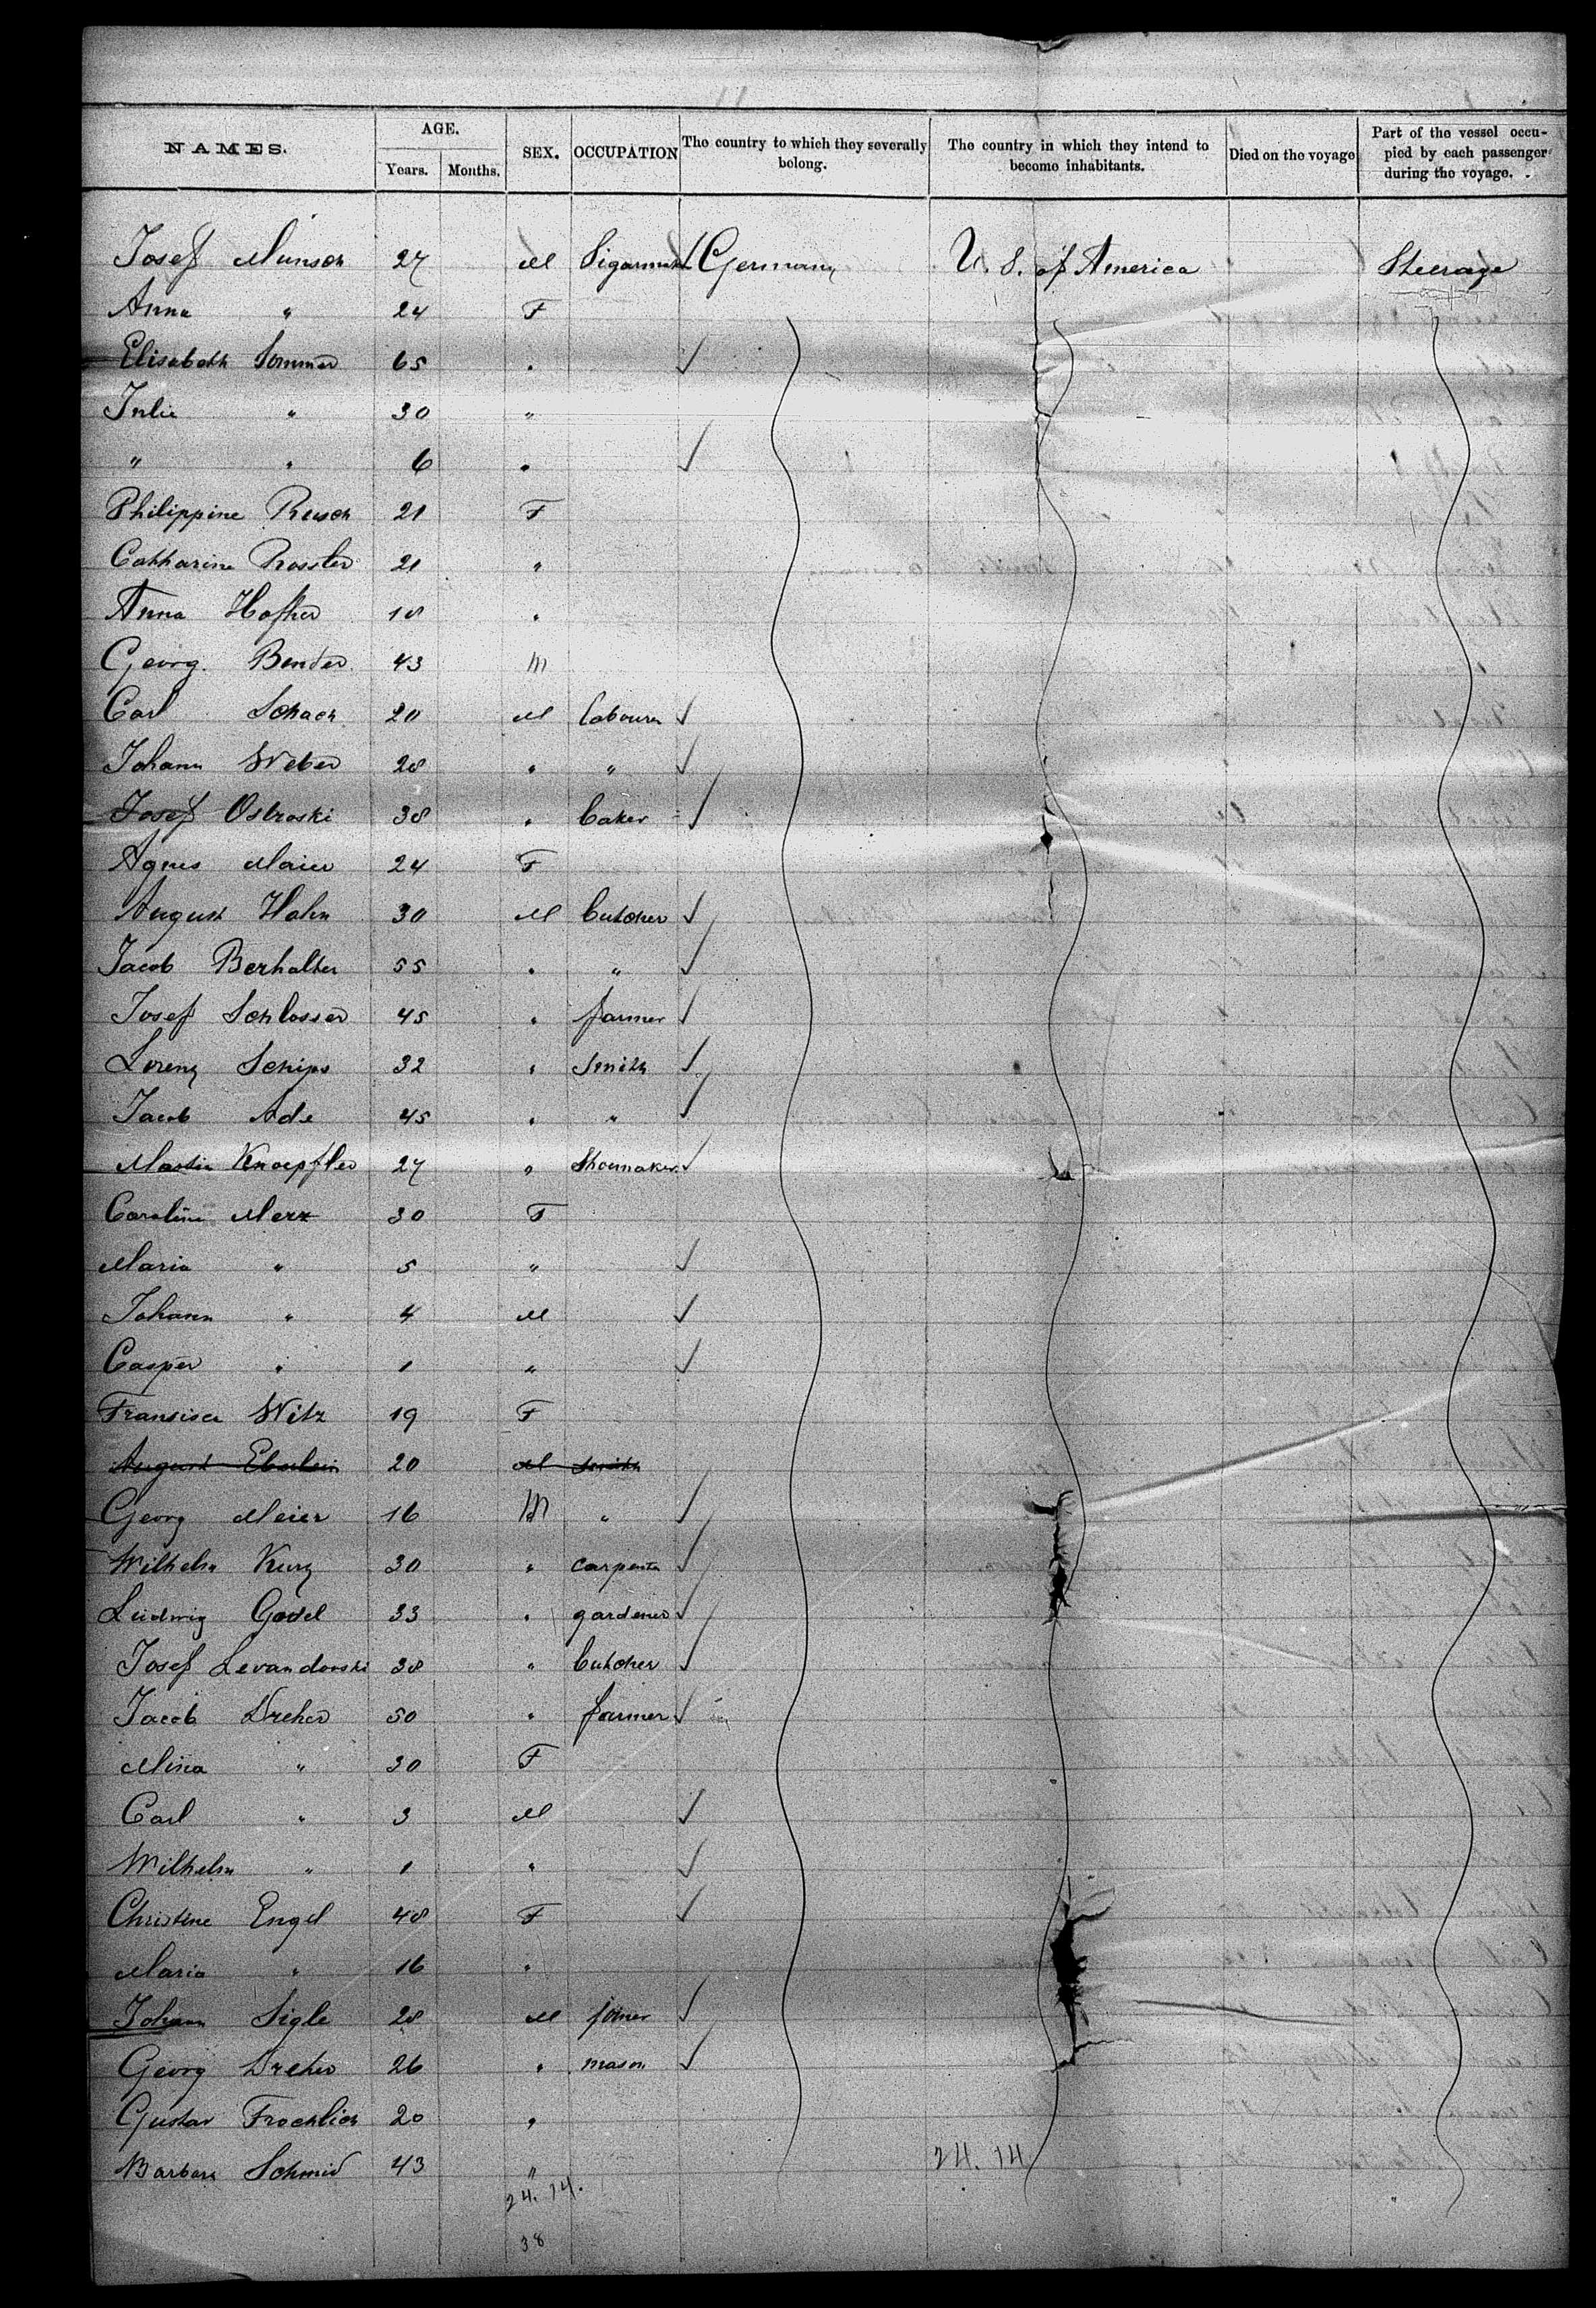 NAMES. AGE. SEX. OCCUPATION The country to which they severally belong. The country in which they intend to become inhabitants. Died on the voyage Part of the vessel occupied by each passenger during the voyage.
Years. Months.
Josef Munsch 27 M Germany U. S. of America Steerage
Anna " 24 F
Elisabeth Sommer 65 "
Julie " 30 "
" " 6 "
Philippine Reusch 21 F
Catharine Rossler 21 "
Anna Hofher 18 "
Georg Bender 43 M
Carl Schach 20 M labourer
Johann Weber 28 " "
Josef Ostroski 38 " baker
Agnes Maier 24 F
August Hahn 30 M butcher
Jacob Berhalter 55 " "
Josef Schlosser 45 " farmer
Lorenz Schips 32 " smith
Jacob Ade 45 " "
Martin Knoepfler 27 " shoemaker
Caroline Merz 30 F
Maria " 5 "
Johann " 4 M
Casper " 1 "
Fransisca Witz 19 F
August Eberlein 20 M smith
Georg Meier 16 M "
Wilhelm Kurz 30 " carpenter
Ludwig Godel 33 " gardener
Josef Levandovski 38 " butcher
Jacob Dreher 50 " farmer
Mina " 30 F
Carl " 3 M
Wilhelm " 1 "
Christine Engel 48 F
Maria " 16 "
Johann Sigle 28 M joiner
Georg Dreher 26 " mason
Gustav Froehlich 20 "
Barbara Schmid 43 " 24. 14
24. 14.
38